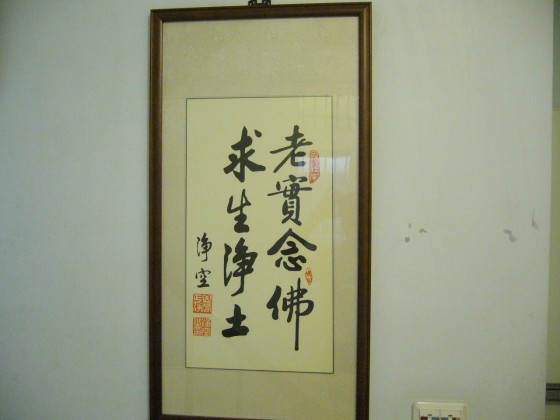 老實念佛
求生淨土
淨空